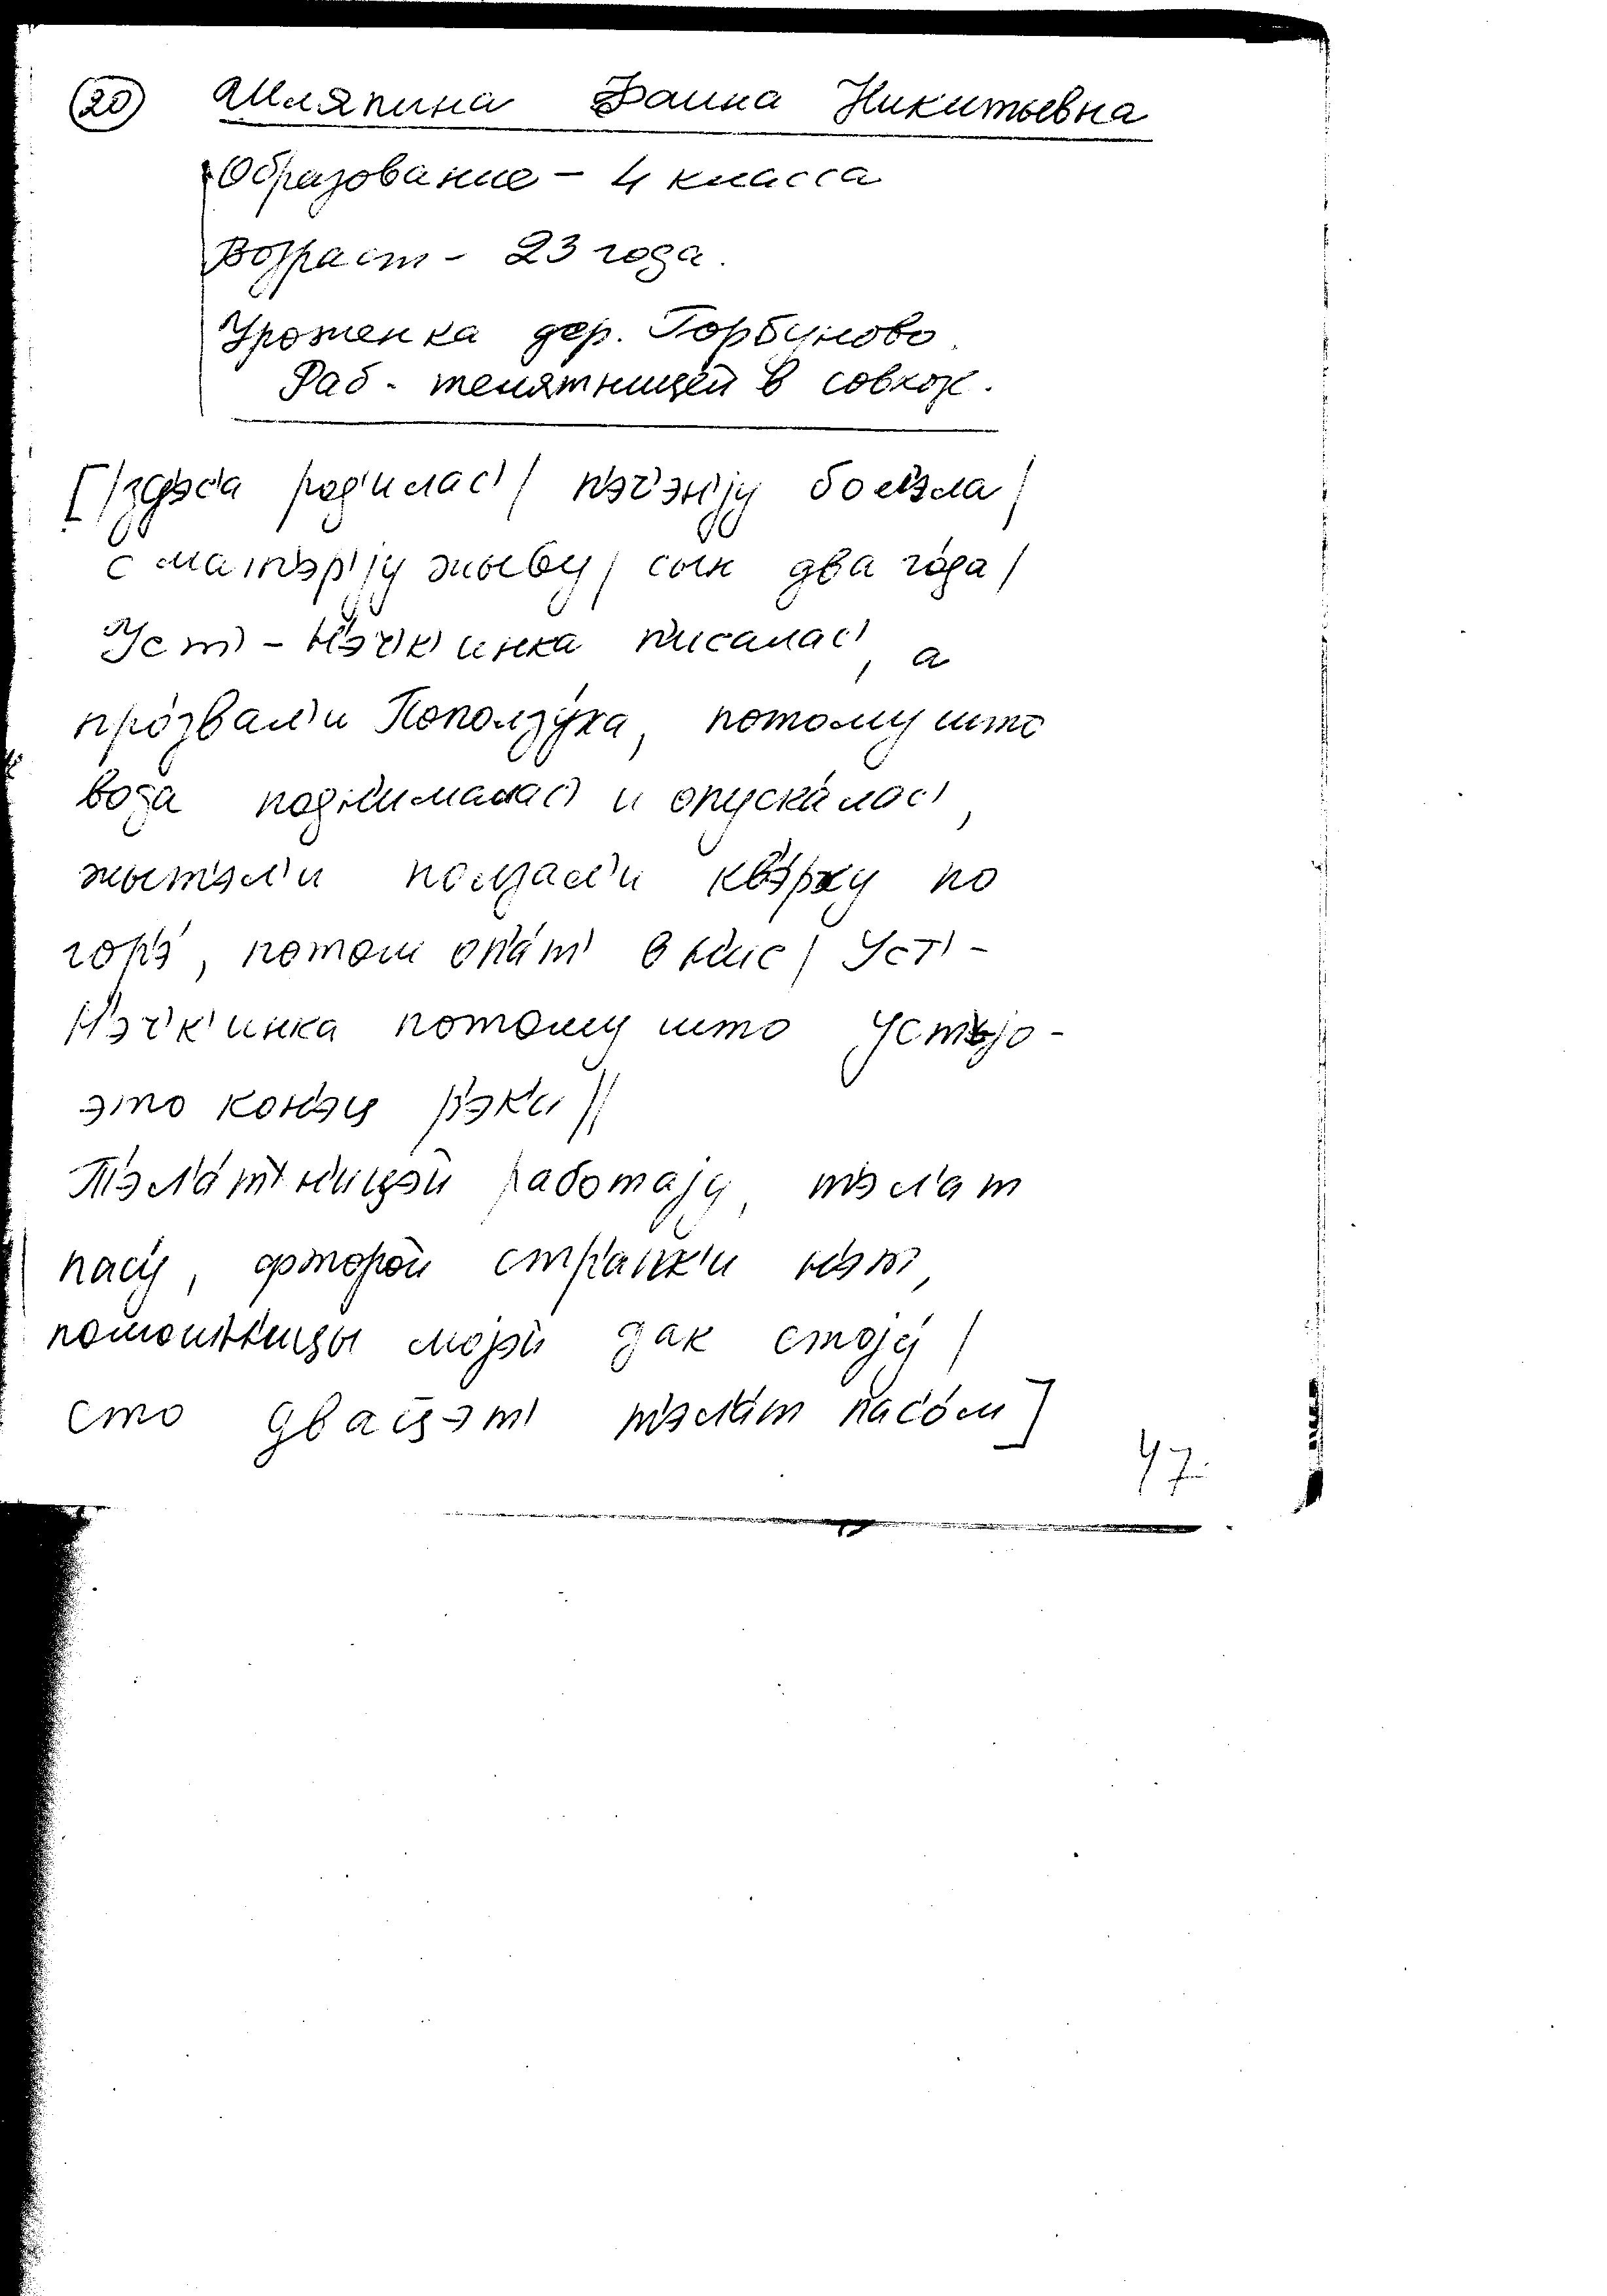 20 Шляпина Фаина Никитьевна
Образование - 4 класса
Возраст - 23 года.
Уроженка дер. Горбуново.
Раб. телятницей в совхоз.
[/зд'э́с'а род'илас'/ п'эч'э́н'jу бол'э́ла/
с мат'эр'jу жыву/ сын два го́да/
Уст'-Н'эч'к'инка п'исалас', а
про́звал'и Поползу́ха, потому што
вода подн'ималас' и опуска́лас',
жыт'эл'и ползал'и кв'э́рху по
гор'э́, потом оп'а́т' в н'ис/ Уст'-
Н'эч'к'инка потому што Уст'jо-
это кон'эц р'эк'и//
Т'эл'а́т'н'ицэй работаjу, т'эл'ат
пасу́, фторо́й стр'апк'и н'эт,
помошн'ицы моjэй дак стоjу́/
сто двац̄эт' т'эл'а́т пас'о́м]
47.